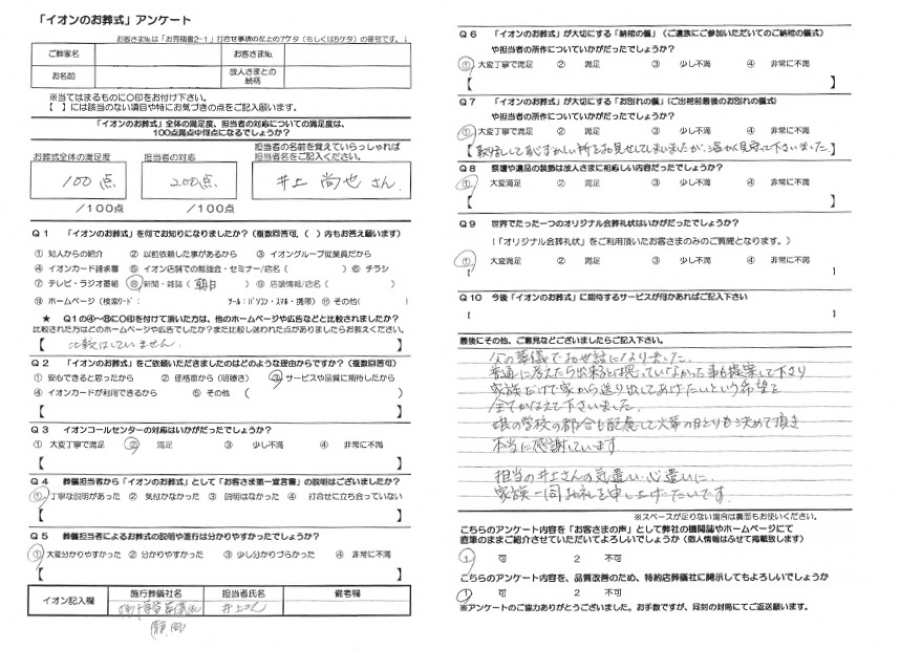 「イオンのお葬式」アンケート
お客さま№は「お見積書2-1」打合せ事項の左上のアケタ(もしくは5ケタ)の番号です。↓
ご葬家名
お客さま№
お名前
故人さまとの続柄
※当てはまるものに○印をお付け下さい。
【 】には該当のない項目や特にお気づきの点をご記入願います。
「イオンのお葬式」全体の満足度、担当者の対応についての満足度は、
100点満点中何点になるでしょうか?
担当者の名前を覚えていらっしゃれば
お葬式全体の満足度 担当者の対応 担当者名をご記入ください。
100点 200点 井上 尚也 さん.
/100点 /100点
Q1 「イオンのお葬式」を何でお知りになりましたか?(複数回答可、( )内もお答え願います)
① 知人からの紹介 ② 以前依頼した事があるから ③ イオングループ従業員だから
④ イオンカード請求書 ⑤ イオン店舗での勉強会・セミナー/店名( ) ⑥ チラシ
⑦ テレビ・ラジオ番組 ⑧ 新聞・雑誌(朝日) ⑨ 店頭情報/店名( )
⑩ ホームページ(検索ワード: ツール:パソコン・スマホ・携帯) ⑪ その他( )
★ Q1の④~⑧に○印を付けて頂いた方は、他のホームページや広告などと比較されましたか?
比較された方はどのホームページや広告でしたか?また比較し迷われた点がありましたらお教えください。
【 比較はしていません 】
Q2 「イオンのお葬式」をご依頼いただきましたのはどのような理由からですか?(複数回答可)
① 安心できると思ったから ② 価格面から(明瞭さ) ③ サービスや品質に期待したから
④ イオンカードが利用できるから ⑤ その他 ( )
Q3 イオンコールセンターの対応はいかがだったでしょうか?
① 大変丁寧で満足 ② 満足 ③ 少し不満 ④ 非常に不満
【 】
Q4 葬儀担当者から「イオンのお葬式」として「お客さま第一宣言書」の説明はございましたか?
① 丁寧な説明があった ② 気付かなかった ③ 説明はなかった ④ 打合せに立ち会っていない
【 】
Q5 葬儀担当者によるお葬式の説明や進行は分かりやすかったでしょうか?
① 大変分かりやすかった ② 分かりやすかった ③ 少し分かりづらかった ④ 非常に不満
【 】
イオン記入欄 施行葬儀社名 担当者氏名 備考欄
井上さん
静岡
Q6 「イオンのお葬式」が大切にする「納棺の儀」(ご遺族にご参加いただいてのご納棺の儀式)
や担当者の所作についていかがだったでしょうか?
① 大変丁寧で満足 ② 満足 ③ 少し不満 ④ 非常に不満
【 】
Q7 「イオンのお葬式」が大切にする「お別れの儀」(ご出棺前最後のお別れの儀式)
や担当者の所作についていかがだったでしょうか?
① 大変丁寧で満足 ② 満足 ③ 少し不満 ④ 非常に不満
して恥ずかしい所をお見せしてしまいましたが、温かく見守って下さいました。】
Q8 祭壇や遺品の装飾は故人さまに相応しい内容だったでしょうか?
① 大変満足 ② 満足 ③ 少し不満 ④ 非常に不満
Q9 世界でたった一つのオリジナル会葬礼状はいかがだったでしょうか?
(「オリジナル会葬礼状」をご利用頂いたお客さまのみのご質問となります。)
① 大変満足 ② 満足 ③ 少し不満 ④ 非常に不満
Q10 今後「イオンのお葬式」に期待するサービスが何かあればご記入下さい
[ ]
最後にその他、ご意見などございましたらご記入下さい。
父の葬儀でお世話になりました。
普通に考えたら出来るとは思っていなかった事も提案して下さり
家族だけで家から送り出してあげたいという希望を
全てかなえて下さいました。
娘の学校の都合も配慮して火葬の日どりも決めて頂き
本当に感謝しています
担当の井上さんの気遣い・心遣いに
家族一同お礼を申し上げたいです。
※スペースが足りない場合は裏面もお使いください。
こちらのアンケート内容を「お客さまの声」として弊社の機関誌やホームページにて
直筆のままご紹介させていただいてよろしいでしょうか(個人情報はふせて掲載致します)
1 可 2 不可
こちらのアンケート内容を、品質改善のため、特約店葬儀社に開示してもよろしいでしょうか
1 可 2 不可
※アンケートのご協力ありがとうございました。お手数ですが、同封の封筒にてご返送願います。